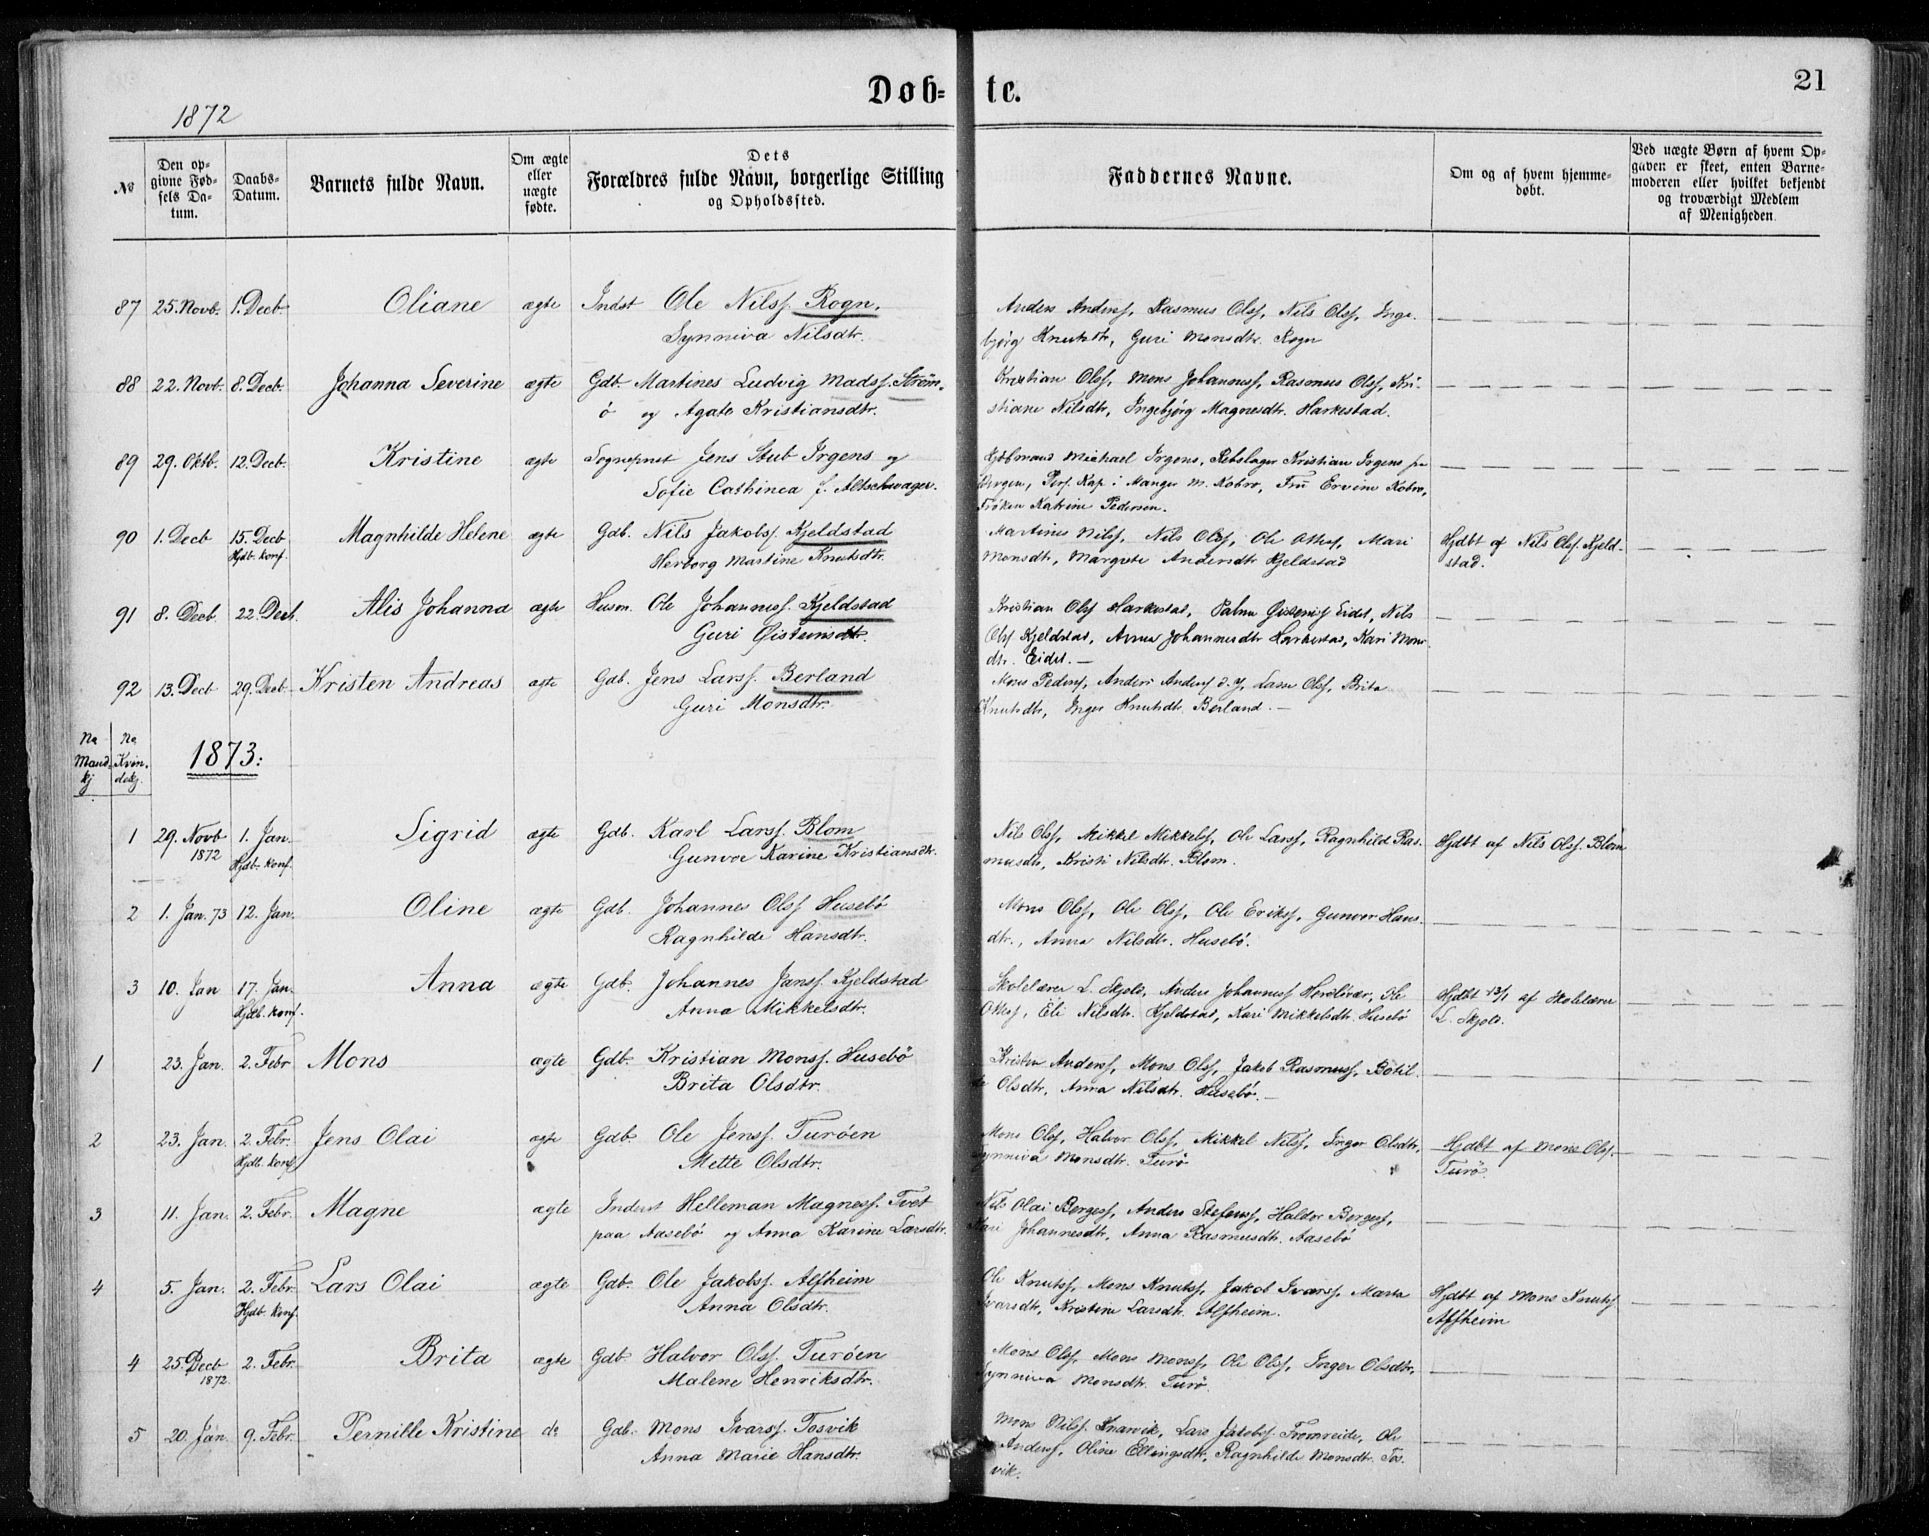 1872
Døb-te.
21
No
Den opgivne Fødsels Datum.
Daabs-Datum.
Barnets fulde Navn.
Om ægte eller uægte fødte.
Dets Forældres fulde Navn, borgerlige Stilling og Opholdssted.
Faddernes Navne.
Om og af hvem hjemmedøbt.
Ved uægte Børn af hvem Opgaven er skeet, enten Barnemoderen eller hvilket bekjendt og troværdigt Medlem af Menigheden.
87 25. Novb. 1. Decb. Oliane ægte Indst Ole Nilss. Rogn.
Synniva Nilsdtr.
Anders Anderss, Rasmus Olss, Nils Olss, Inge-
bjørg Knutsdtr, Guri Monsdtr. Rogn
88 22. Novb. 8. Decb. Johanna Severine ægte Gdb. Martines Ludvig Madss. Strøm-
ø og Agate Kristiansdtr.
Kristian Olss, Mons Johanness, Rasmus Olss, Kri-
stiane Nilsdtr, Ingebjørg Magnesdtr. Harkestad.
89 29. Oktb. 12. Decb. Kristine ægte Sognepret Jens Stub Irgens og
Sofie Cathinca f. Altschwager.
Michael Irgens, Rebslager Kristian Irgens fra
Bergen, Pers. Kap. i Manger M. Kobro, Fru Ervine Kobro,
Frøken Katrine Pedersen.
90 1. Decb 15. Decb Hjdb. konf. Magnhilde Helene ægte Gdb. Nils Jakobss. Kjeldstad
Herborg Martine Knutsdtr.
Martines Nilss, Nils Olss, Ole Otters, Mari
Monsdtr, Margrete Andersdtr Kjeldstad
Hjdbt af Nils Olss. Kjeld-
stad.
91 8. Decb. 22. Decb. Alis Johanna ægte Husm. Ole Johanness. Kjeldstad
Guri Øisteinsdtr.
Kristian Olss Harkestad, Eidet, Nils
Olss Kjeldstad, Anna Johannesdtr Harkestad, Kari Mons
dtr. Eidet. —
92 13. Decb 29. Decb Kristen Andreas ægte Gdb. Jens Larss. Berland
Guri Monsdtr.
Mons Pederss, Anders Anderss d.y, Lasse Olss, Brita
Knutsdtr, Inger Knutsdtr. Berland. —
No Mandkj No Kvindekj. 1873:
1 29. Novb 1872 1. Jan. Hjdb. konf Sigrid ægte Gdb. Karl Larss. Blom
Gunvor Karine Kristiansdtr.
Nils Olss, Mikkel Mikkelss, Ole Larss, Ragnhild Ras-
musdtr, Kristi Nilsdtr. Blom.
Hjdbt af Nils Olss. Blom
2 1. Jan. 73 12. Jan. Oline ægte Gdb. Johannes Olss Husebø
Ragnhilde Hansdtr.
Mons Olss, Ole Olss, Ole Erikss, Gunvor Hans
dtr., Anna Nilsdtr. Husebø.
3 10. Jan 17. Jan. Hjdb. konf. Anna ægte Gdb. Johannes Janss. Kjeldstad
Anna Mikkelsdtr.
Skolelærer L. Skjold, Anders Johanness Herdlevær, Ole
Otters, Eli Nilsdtr. Kjeldstad, Kari Mikkelsdtr. Husebø
Hjdbt 13/1 af Skolelærer
L. Skjold.
1 23. Jan. 2. Febr Mons ægte Gdb. Kristian Monss. Husebø
Brita Olsdtr.
Kristen Anderss, Mons Olss, Jakob Rasmuss, Botil-
de Olsdtr, Anna Nilsdtr. Husebø. —
2 23. Jan. 2. Febr. Hjdb. konf Jens Olai ægte Gdb. Ole Jenss. Turøen
Mette Olsdtr.
Mons Olss, Halvor Olss, Mikkel Nilss, Inger Olsdtr,
Synniva Monsdtr. Turø
Hjdbt af Mons Olss.
Turø.
3 11. Jan. 2. Febr. Magne ægte Inderst Helleman Magness. Tvet
paa Aasebø og Anna Karine Larsdtr.
Nils Olai Bergess, Anders Stefenss, Haldor Bergess,
Mari Johannesdtr, Anna Rasmusdtr. Aasebø
4 5. Jan. 2. Febr Hjdb. konf. Lars Olai ægte Gdb. Ole Jakobss. Alfheim
Anna Olsdtr.
Ole Knutss, Mons Knutss, Jakob Ivarss, Marta
Ivarsdtr, Kristine Larsdtr. Alfheim.
Hjdbt af Mons Knutss
Alfheim
4 25. Decb 1872. 2. Febr. Brita ægte Gdb Halvor Olss. Turøen
Malene Henriksdtr.
Mons Olss, Mons Monss, Ole Olss, Inger Olsdtr,
Synniva Monsdtr. Turø.
5 20. Jan. 9. Febr. Pernille Kristine do Gdb. Mons Ivarss. Tosvik
Anna Marie Hansdtr.
Mons Nilss. Knarvik, Lars Jakobss. Fromreide, Ole
Anderss, Oline Ellingsdtr, Ragnhilde Monsdtr. Tos-
vik.